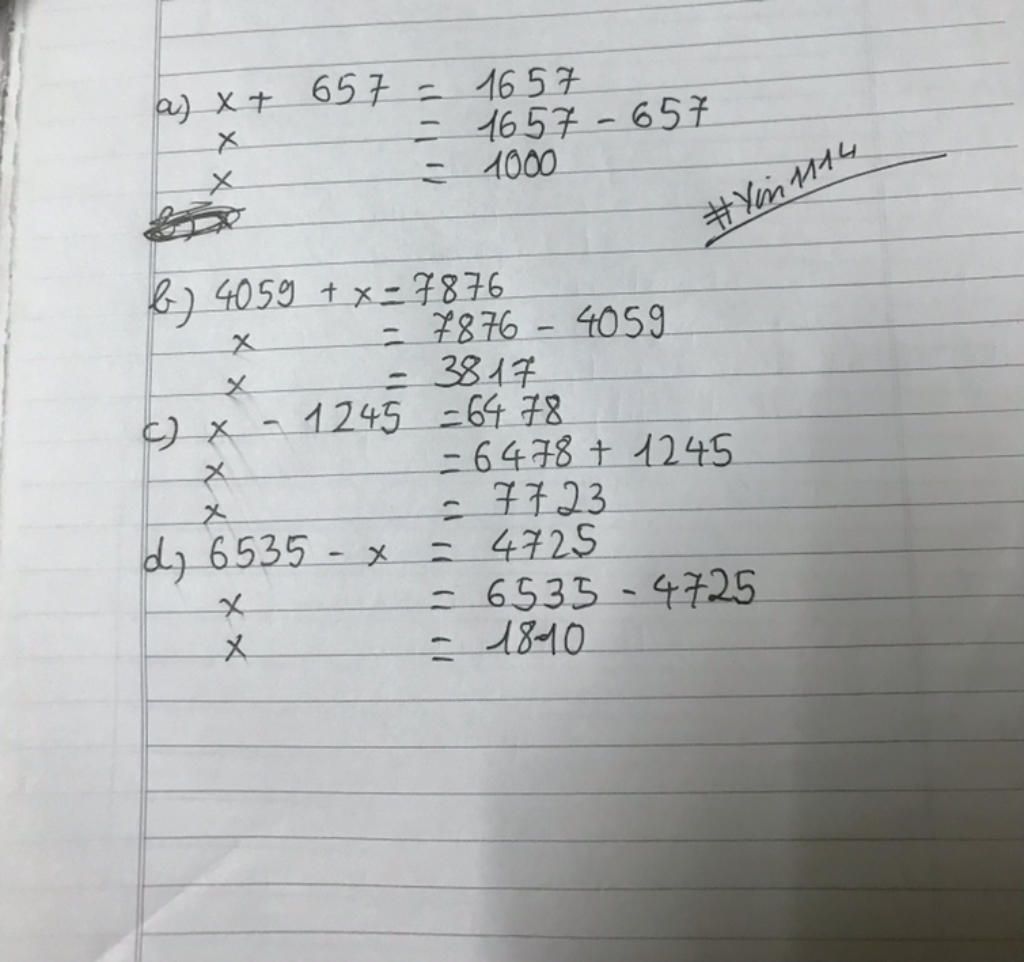 a) x + 657 = 1657
x = 1657 - 657
x = 1000
#Yin1114
b) 4059 + x = 7876
x = 7876 - 4059
x = 3817
c) x - 1245 = 6478
x = 6478 + 1245
x = 7723
d) 6535 - x = 4725
x = 6535 - 4725
x = 1810